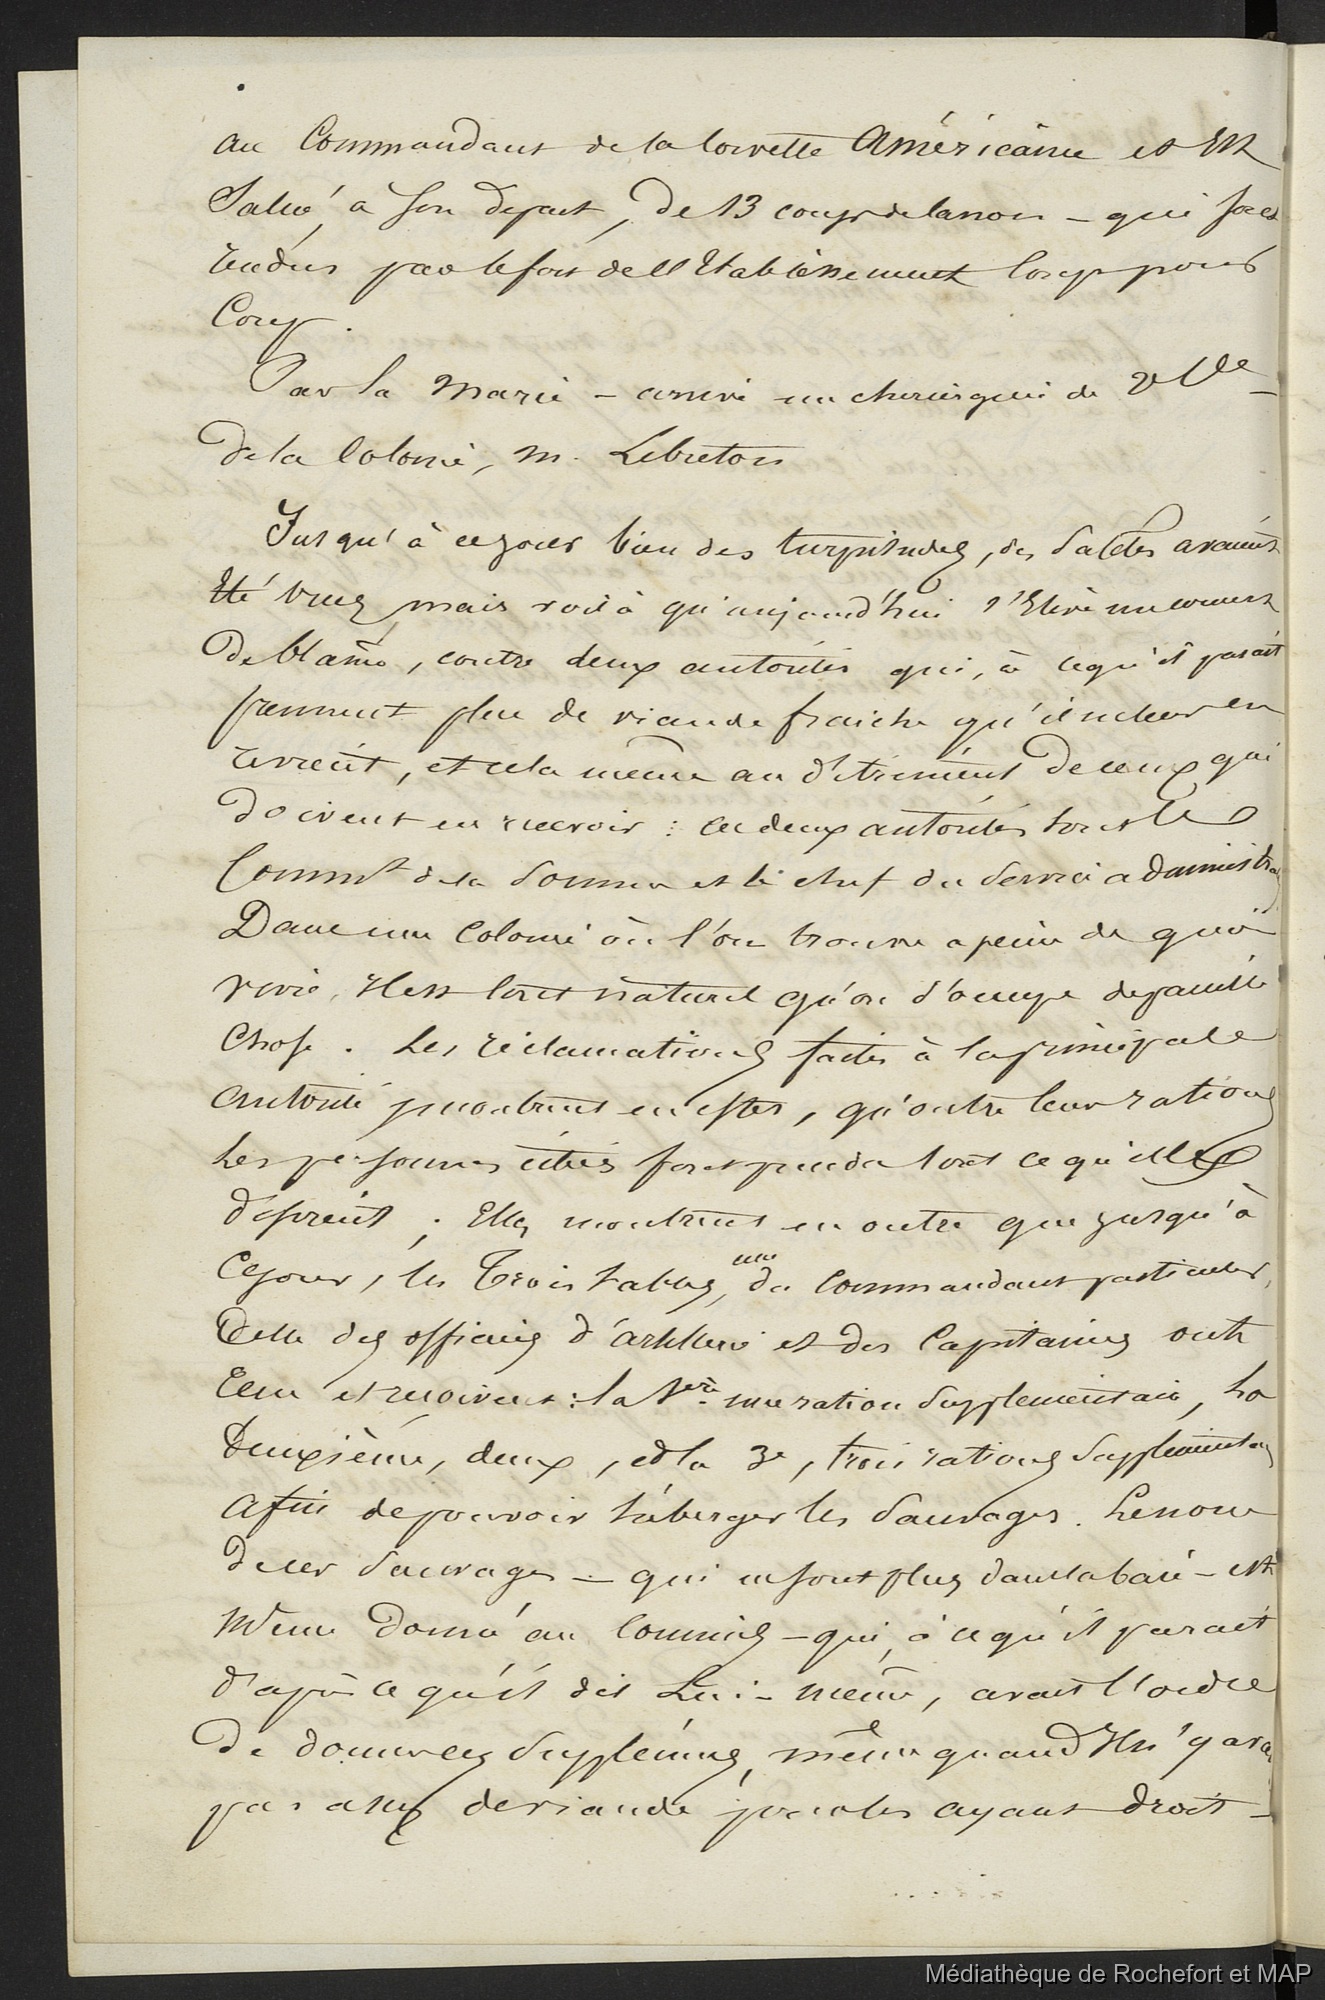 au Commandant de la Corvette Américaine et est
Salué, à son départ, de 13 coups de canon – qui sont
rendus par le fort de l'Etablissement coup pour
Coup.
Par la Marie – arrive un chirurgien de 2e Cl.e –
de la Colonie, M. Lebreton
Jusqu'à ce jour bien des turpitudes, des saletés avaient
Eté vues, mais voilà qu'aujourd'hui s'Elève un comment
de blâme, contre deux autorités qui, à ce qu'il parait
prennent plus de viande fraiche qu'il ne leur en
revient, et cela même au détriment de ceux qui
doivent en recevoir : ces deux autorités sont le
Comm.t de la Somme et le chef du Service administra
Dans une Colonie où l'on trouve a peine de quoi
vivre, il est tout naturel qu'on s'occupe de pareille
Chose. Les réclamations faites à la principale
autorité montrent en effet, qu'outre leur rations
Les personnes citées font prendre tout ce qu'elles
désirent ; Elles montrent en outre que jusqu'à
Ce jour, les Trois tables, une du Commandant particulier,
Celle des officiers d'artillerie et des Capitaines ont
Reçu et reçoivent : la 1ère une ration supplémentaire, La
Deuxième, deux, et la 3e, trois rations supplémenta
afin de pouvoir héberger les Sauvages. Le nom
de ces Sauvages – qui ne sont plus dans la baie – est
Même donné au Commis – qui, à ce qu'il parait
d'après ce qu'il dit Lui-même, avait l'ordre
De donner ces supplémens, même quand il n'y avai
pas assez de viande pour les ayant droit –
Médiathèque de Rochefort et MAP